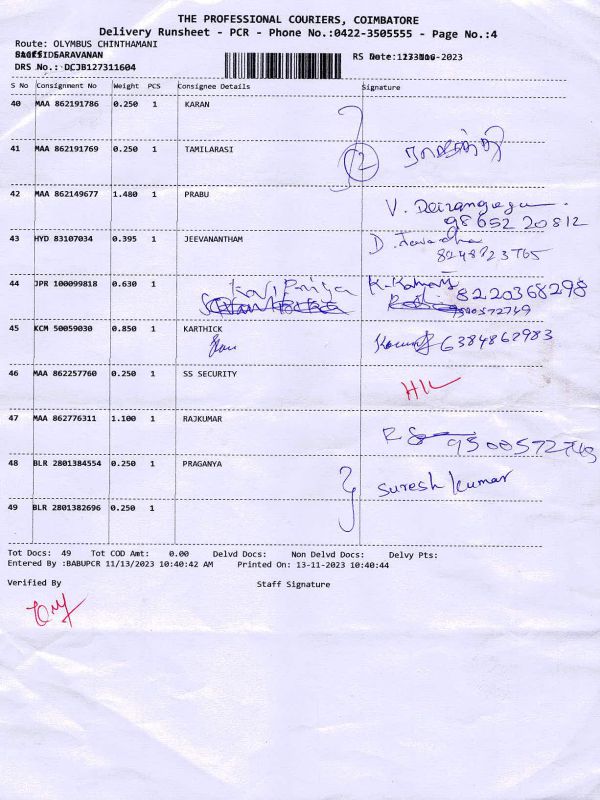 THE PROFESSIONAL COURIERS, COIMBATORE
Delivery Runsheet - PCR - Phone No.:0422-3505555 - Page No.:4
Route: OLYMBUS CHINTHAMANI
SARAVANAN RS Date: -2023
DRS No.: DCJB127311604
S No Consignment No Weight PCS Consignee Details Signature
40 MAA 862191786 0.250 1 KARAN
41 MAA 862191769 0.250 1 TAMILARASI
2
42 MAA 862149677 1.480 1 PRABU
V.
98652 20812
43 HYD 83107034 0.395 1 JEEVANANTHAM
D.
44 JPR 100099818 0.630 1 Kavi Priya 8220368298
9500572749
45 KCM 50059030 0.850 1 KARTHICK
6384862983
46 MAA 862257760 0.250 1 SS SECURITY
47 MAA 862776311 1.100 1 RAJKUMAR
9500572749
48 BLR 2801384554 0.250 1 PRAGANYA
Suresh kumar
49 BLR 2801382696 0.250 1
Tot Docs: 49 Tot COD Amt: 0.00 Delvd Docs: Non Delvd Docs: Delvy Pts:
Entered By :BABUPCR 11/13/2023 10:40:42 AM Printed On: 13-11-2023 10:40:44
Verified By Staff Signature